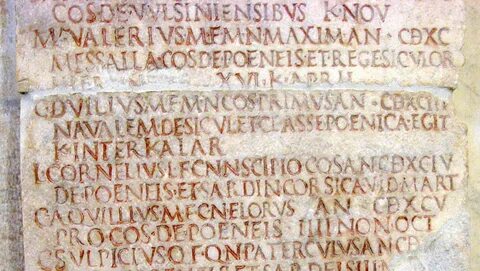 COS·DE·VVLSINIENSIBVS K·NOV
M·VALERIVS·M·F·M·N·MAXIMA AN·CDXC
MESSALLA·COS·DE·POENEIS·ET·REGE·SICVLOR
XVI·K·APRIL
C·DVILIVS·M·F·M·N·COS·PRIMVS·AN·CDXCIII
NAVALEM·DE·SICVL·ET·CLASSE·POENICA·EGIT
K·INTERKALAR
L·CORNELIVS·L·F·CN·N·SCIPIO·COS·AN·CDXCIV
DE·POENEIS·ET·SARDIN·CORSICA·V·ID·MART
C·AQVILLIVS·M·F·C·N·FLORVS AN·CDXCV
PRO·COS·DE·POENEIS IIII·NON·OCT
C·SVLPICIVS·Q·F·Q·N·PATERCVLVS·AN·CD
ET·SARDEIS·III